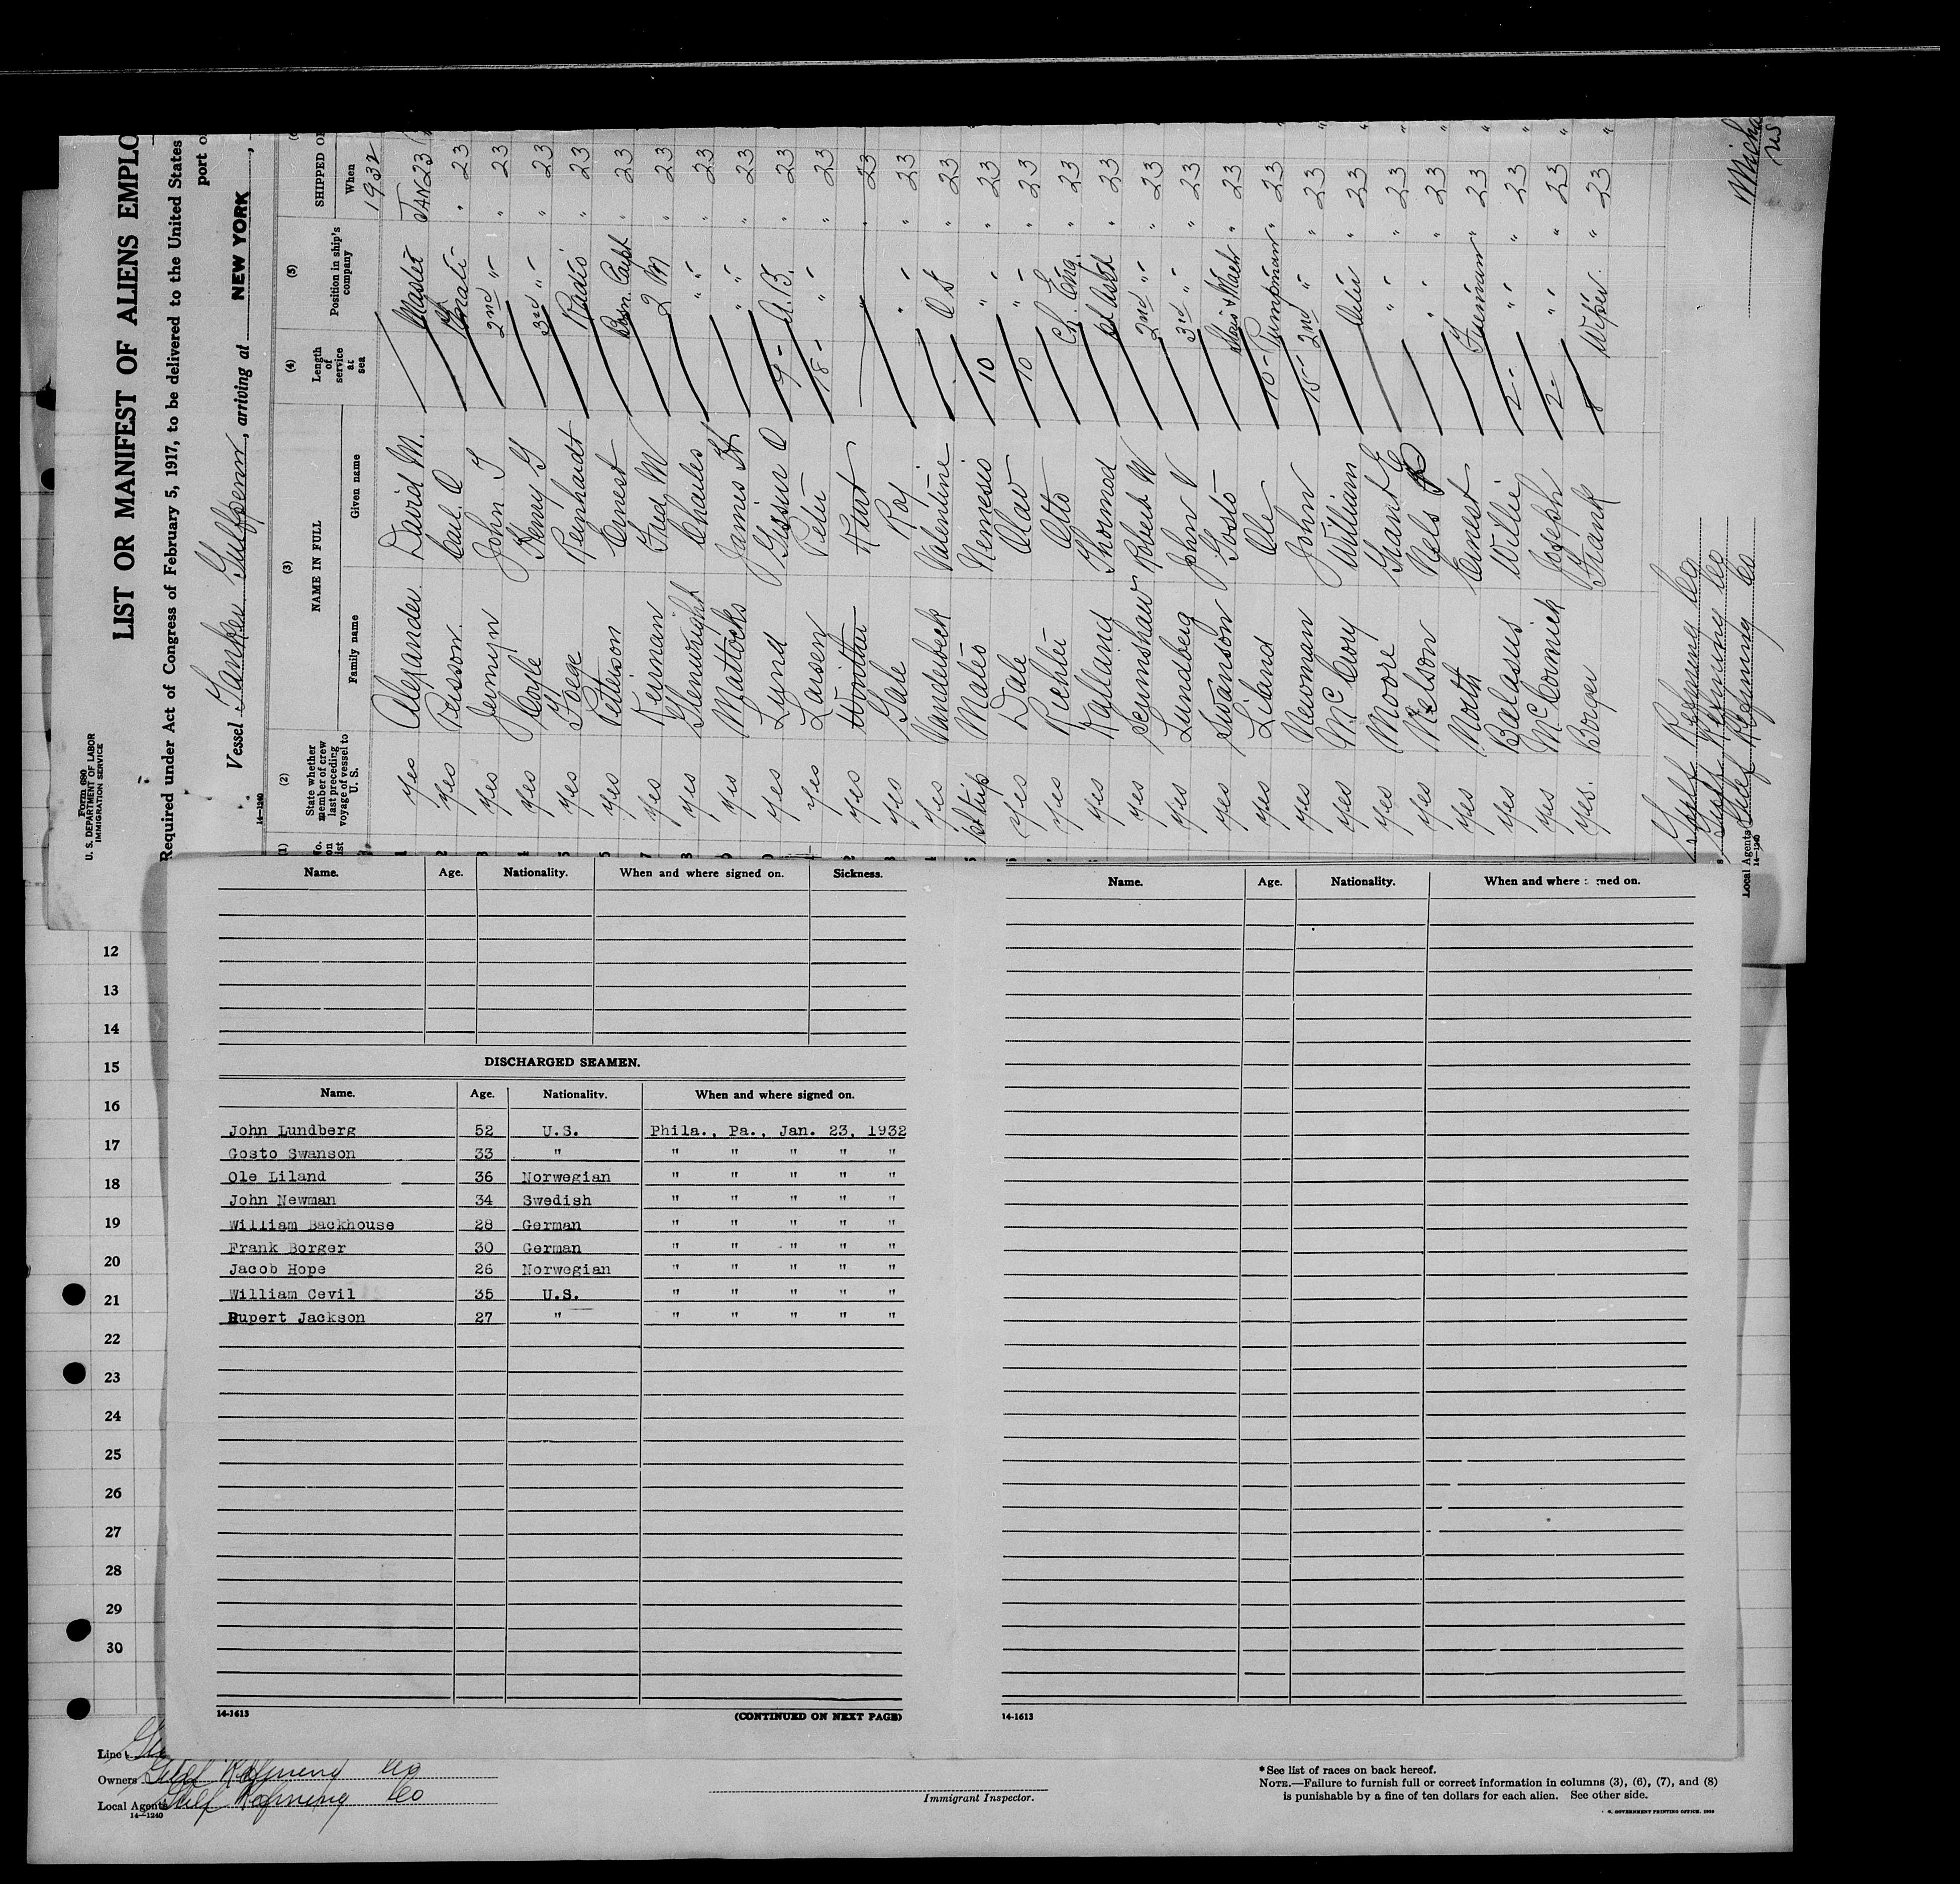 Form 680
U. S. DEPARTMENT OF LABOR
IMMIGRATION SERVICE
LIST OR MANIFEST OF ALIENS EMPLO
Required under Act of Congress of February 5, 1917, to be delivered to the United States
port o
Vessel Tanker Gulfpenn, arriving at NEW YORK,
14—1240
(1) (2) (3) (4) (5)
No. on list
State whether member of crew last preceding voyage of vessel to U. S.
NAME IN FULL
Family name Given name
Length of service at sea
Position in ship's company
SHIPPED OR
When
1932
Yes Alexander David M. Master JAN 23
Yes Persson Carl O Ch Mate " 23
Yes Jermyn John T 2nd " " 23
Yes Coyle Henry G 3rd " " 23
Yes Foege Reinhardt Radio " 23
Yes Petterson Ernest Bosn. " 23
Yes Neyman Fred W 2 M " 23
Yes Glenwright Charles " " 23
Yes Mattocks James H " " 23
Yes Lund Gissur O 9 - A.B. " 23
Yes Larsen Peter 18 - " " 23
Yes Kurt " 23
Yes Gale Roy " " 23
Yes Vanderbeck Valentine O S " 23
1st trip Mateo Nemesio 10 " " 23
Yes Dale Olav 10 " " 23
Yes Richter Otto Ch. Eng. " 23
Yes Kalland Thormod 1st Asst " 23
Yes Scrimshaw Robert W 2nd " " 23
Yes Lundberg John V 3rd " " 23
Yes Swanson Gosto " 23
Yes Liland Ole 10 - Pumpman " 23
Yes Newman John 15 - 2nd " " 23
Yes McCrory William Oiler " 23
Yes Moore Grant E " " 23
Yes Nelson Nels P " " 23
Yes Moth Ernest Fireman " 23
Yes Balasus Willie 2 - " " 23
Yes McCormick Joseph 2 - " " 23
Yes. Borger Frank 8 Wiper. " 23
Gulf Refining Co
Gulf Refining Co
Local Agents Gulf Refining Co
14—1240
Name. Age. Nationality. When and where signed on. Sickness.
DISCHARGED SEAMEN.
Name. Age. Nationality. When and where signed on.
John Lundberg 52 U.S. Phila., Pa., Jan. 23, 1932
Gosto Swanson 33 " " " " " "
Ole Liland 36 Norwegian " " " " "
John Newman 34 Swedish " " " " "
William Backhouse 28 German " " " " "
Frank Borger 30 German " " " " "
Jacob Hope 26 Norwegian " " " " "
William Cevil 35 U.S. " " " " "
Rupert Jackson 27 " " " " " "
14-1613 (CONTINUED ON NEXT PAGE)
Name. Age. Nationality. When and where ned on.
14-1613
12
13
14
15
16
17
18
19
20
21
22
23
24
25
26
27
28
29
30
Line
Owners Gulf Refining Co
Local Agents Gulf Refining Co
14—1240
Immigrant Inspector.
*See list of races on back hereof.
NOTE.—Failure to furnish full or correct information in columns (3), (6), (7), and (8)
is punishable by a fine of ten dollars for each alien. See other side.